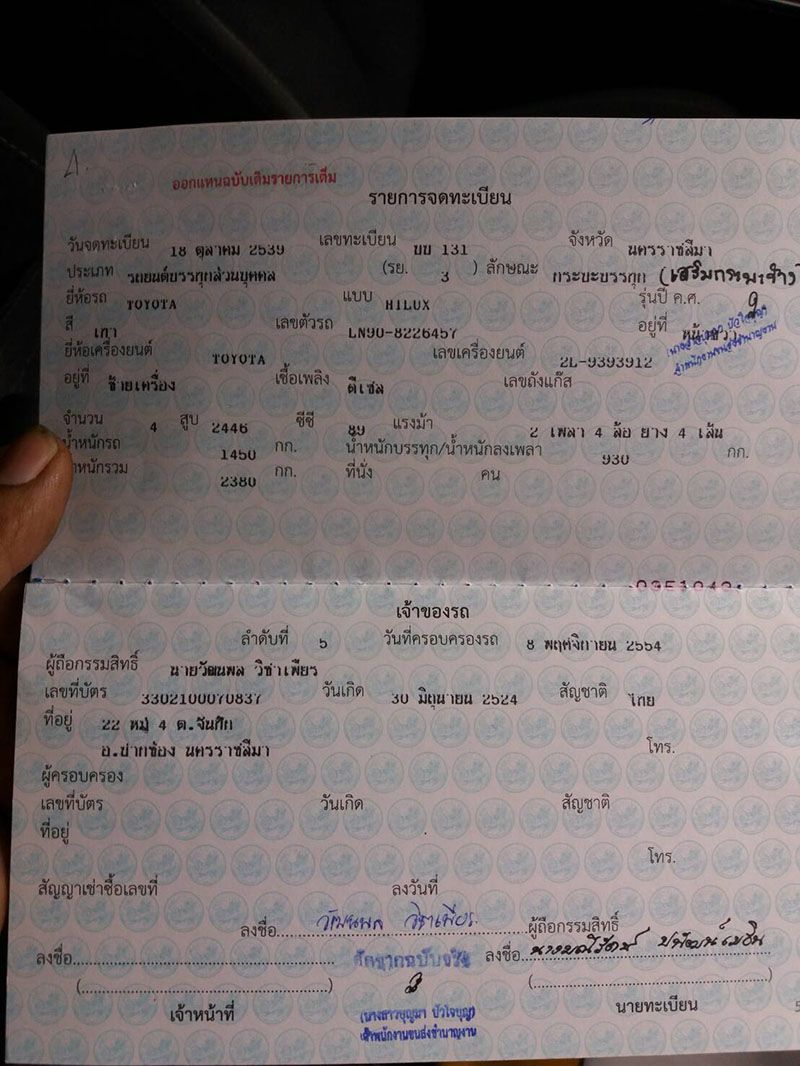 ออกแทนฉบับเดิมรายการเต็ม
รายการจดทะเบียน
วันจดทะเบียน 18 ตุลาคม 2539 เลขทะเบียน บบ 131 จังหวัด นครราชสีมา
ประเภท รถยนต์บรรทุกส่วนบุคคล (รย. 3 ) ลักษณะ กระบะบรรทุก
ยี่ห้อรถ TOYOTA แบบ HILUX รุ่นปี ค.ศ.
สี เทา เลขตัวรถ LN90-8226457 อยู่ที่
ยี่ห้อเครื่องยนต์ TOYOTA เลขเครื่องยนต์ 2L-9393912
อยู่ที่ ซ้ายเครื่อง เชื้อเพลิง ดีเซล เลขถังแก๊ส
จำนวน 4 สูบ 2446 ซีซี 89 แรงม้า 2 เพลา 4 ล้อ ยาง 4 เส้น
น้ำหนักรถ 1450 กก. น้ำหนักบรรทุก/น้ำหนักลงเพลา 930 กก.
น้ำหนักรวม 2380 กก. ที่นั่ง คน
เจ้าของรถ
ลำดับที่ 5 วันที่ครอบครองรถ 8 พฤศจิกายน 2554
ผู้ถือกรรมสิทธิ์ นายวัฒนพล วิชาเพียร
เลขที่บัตร 3302100070837 วันเกิด 30 มิถุนายน 2524 สัญชาติ ไทย
ที่อยู่ 22 หมู่ 4 ต.จันทึก
อ.ปากช่อง นครราชสีมา โทร.
ผู้ครอบครอง
เลขที่บัตร วันเกิด สัญชาติ
ที่อยู่
โทร.
สัญญาเช่าซื้อเลขที่ ลงวันที่
ลงชื่อ วัฒนพล วิชาเพียร ผู้ถือกรรมสิทธิ์
ลงชื่อ ลงชื่อ
เจ้าหน้าที่ นายทะเบียน
เจ้าพนักงานขนส่งชำนาญงาน